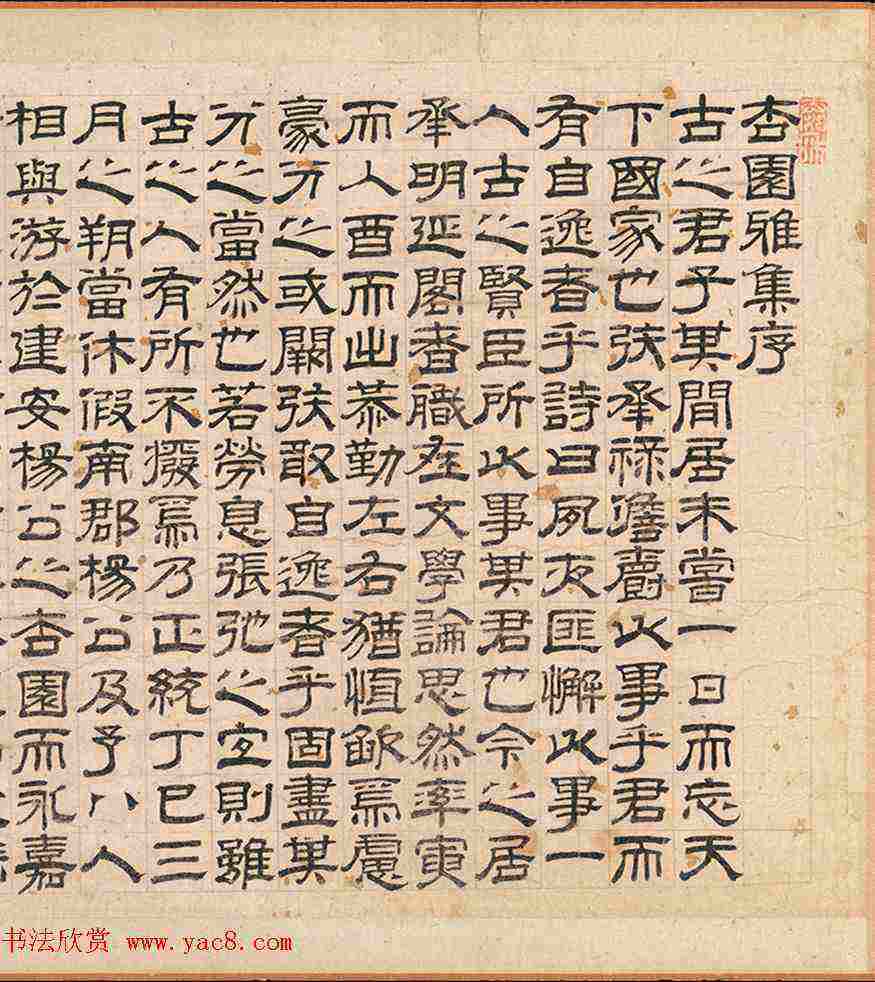 杏園雅集序
古之君子其閒居未嘗一日而忘天
下國家也矧承祿儋爵以事乎君而
有自逸者乎詩曰夙夜匪懈以事一
人古之賢臣所以事其君也今之居
承明延閣者職在文學論思然率寅
而入酉而出恭勤左右猶恒歉焉慮
豪分之或闕矧敢自逸者乎固盡其
分之當然也若勞息張弛之宜則雖
古之人有所不廢焉乃正統丁巳三
月之朔當休假南郡楊公及予八人
相與游於建安楊公之杏園而永嘉
书法欣赏 www.yac8.com